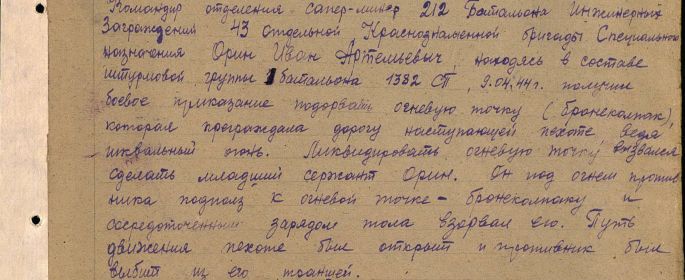 Командир отделения сапер-минер 212 Батальона Инженерных
Заграждений 43 отдельной Краснознаменной бригады Специального
назначения Орин Иван Артемьевич, находясь в составе
штурмовой группы 1 батальона 1332 СП, 9.04.44г. получил
боевое приказание подорвать огневую точку (бронеколпак),
которая преграждала дорогу наступающей пехоте, ведя
шквальный огонь. Ликвидировать огневую точку вызвался
сделать младший сержант Орин. Он под огнем против
ника подполз к огневой точке - бронеколпаку и
сосредоточенным зарядом тола взорвал его. Путь
движения пехоте был открыт и противник был
выбит из его траншей.